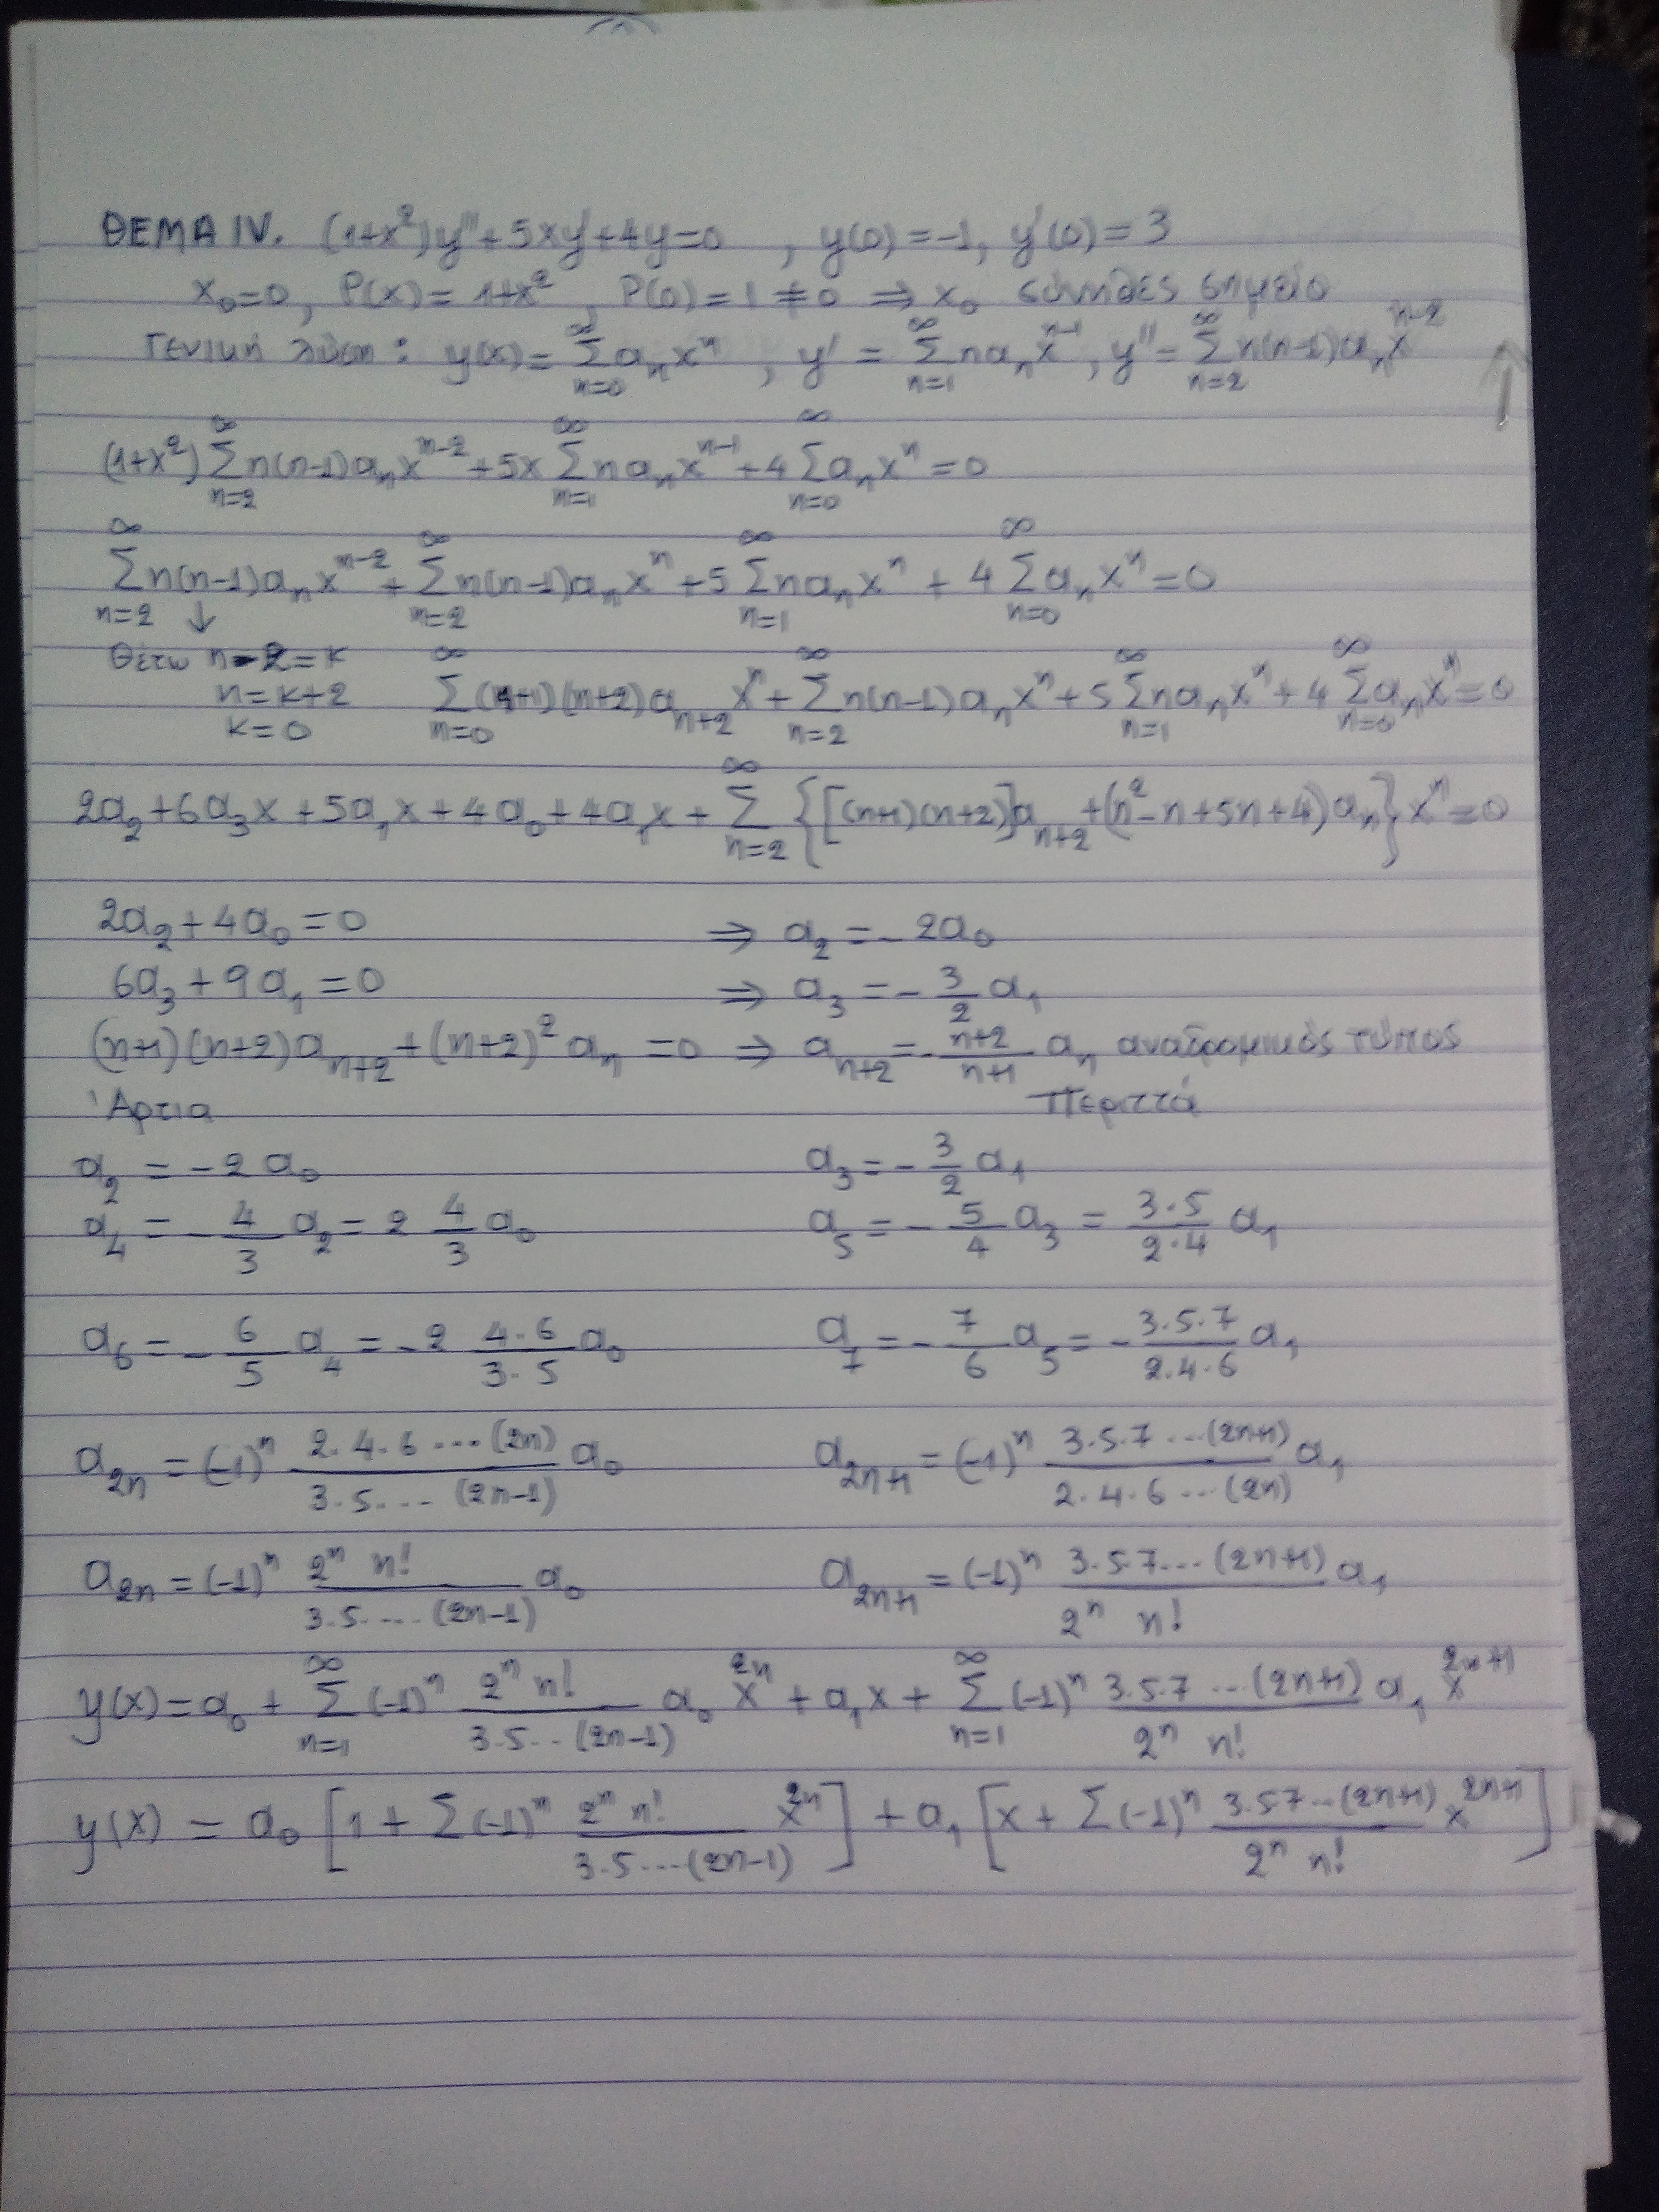 ΘΕΜΑ IV. (1+x²)y''+5xy'+4y=0 , y(0)=-1, y'(0)=3
x₀=0, P(x)=1+x², P(0)=1≠0 ⇒ x₀ σύνηθες σημείο
Γενική λύση: y(x)=∑_{n=0}^{∞} aₙxⁿ , y' = ∑_{n=1}^{∞} naₙx^{n-1}, y''=∑_{n=2}^{∞} n(n-1)aₙx^{n-2}
(1+x²)∑_{n=2}^{∞} n(n-1)aₙx^{n-2}+5x∑_{n=1}^{∞} naₙx^{n-1}+4∑_{n=0}^{∞} aₙxⁿ=0
∑_{n=2}^{∞} n(n-1)aₙx^{n-2}+∑_{n=2}^{∞} n(n-1)aₙxⁿ+5∑_{n=1}^{∞} naₙxⁿ + 4∑_{n=0}^{∞} aₙxⁿ=0
↓
Θέτω n-2=k
n=k+2
k=0
∑_{n=0}^{∞} (n+1)(n+2)a_{n+2}xⁿ+∑_{n=2}^{∞} n(n-1)aₙxⁿ+5∑_{n=1}^{∞} naₙxⁿ+4∑_{n=0}^{∞} aₙxⁿ=0
2a₂+6a₃x+5a₁x+4a₀+4a₁x+∑_{n=2}^{∞} {[(n+1)(n+2)]a_{n+2}+(n²-n+5n+4)aₙ}xⁿ=0
2a₂+4a₀=0 ⇒ a₂=-2a₀
6a₃+9a₁=0 ⇒ a₃=-\frac{3}{2}a₁
(n+1)(n+2)a_{n+2}+(n+2)²aₙ=0 ⇒ a_{n+2}=-\frac{n+2}{n+1}aₙ αναδρομικός τύπος
Άρτια Περιττά
a₂ = -2a₀ a₃=-\frac{3}{2}a₁
a₄ = -\frac{4}{3}a₂=2\frac{4}{3}a₀ a₅=-\frac{5}{4}a₃=\frac{3·5}{2·4}a₁
a₆=-\frac{6}{5}a₄=-2\frac{4·6}{3·5}a₀ a₇=-\frac{7}{6}a₅=-\frac{3·5·7}{2·4·6}a₁
a_{2n}=(-1)ⁿ\frac{2·4·6···(2n)}{3·5···(2n-1)}a₀ a_{2n+1}=(-1)ⁿ\frac{3·5·7···(2n+1)}{2·4·6···(2n)}a₁
a_{2n}=(-1)ⁿ\frac{2ⁿ n!}{3·5····(2n-1)}a₀ a_{2n+1}=(-1)ⁿ\frac{3·5·7···(2n+1)}{2ⁿ n!}a₁
y(x)=a₀+∑_{n=1}^{∞} (-1)ⁿ\frac{2ⁿ n!}{3·5··(2n-1)}a₀x^{2n}+a₁x+∑_{n=1}^{∞} (-1)ⁿ\frac{3·5·7···(2n+1)}{2ⁿ n!}a₁x^{2n+1}
y(x) = a₀[1+∑(-1)ⁿ\frac{2ⁿ n!}{3·5···(2n-1)}x^{2n}]+a₁[x+∑(-1)ⁿ\frac{3·5·7··(2n+1)}{2ⁿ n!}x^{2n+1}]